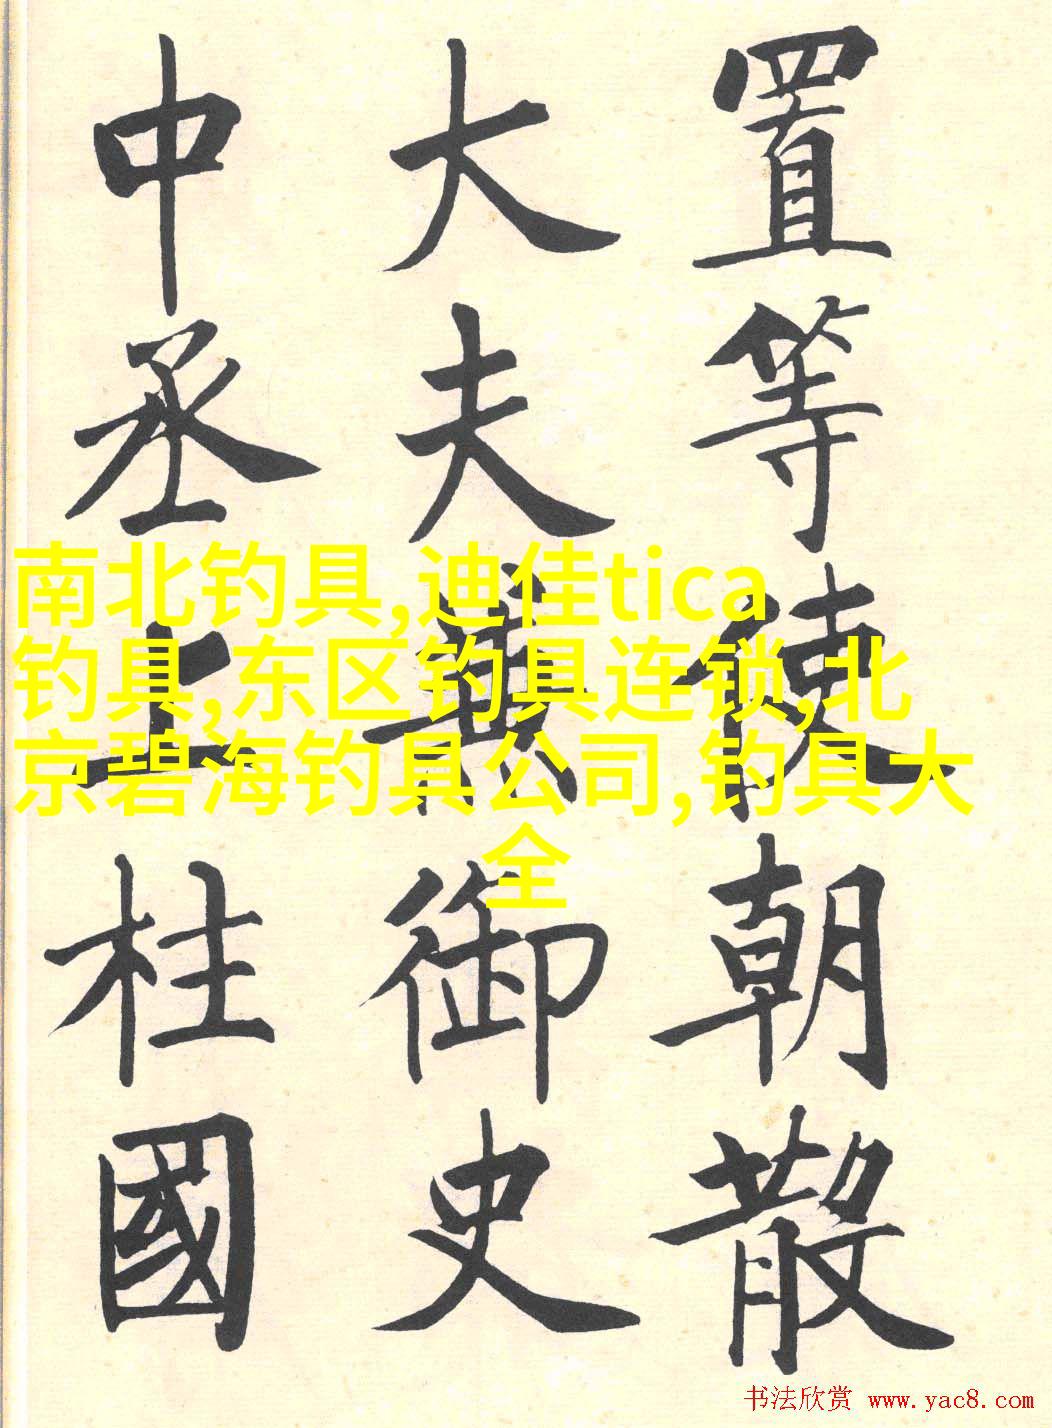 置等使朝散
大夫兼御史
中丞上柱國
南北钓具,迪佳tica
钓具,东区钓具连锁,北
京碧海钓具公司,钓具大
全
书法欣赏 www.yac8.com